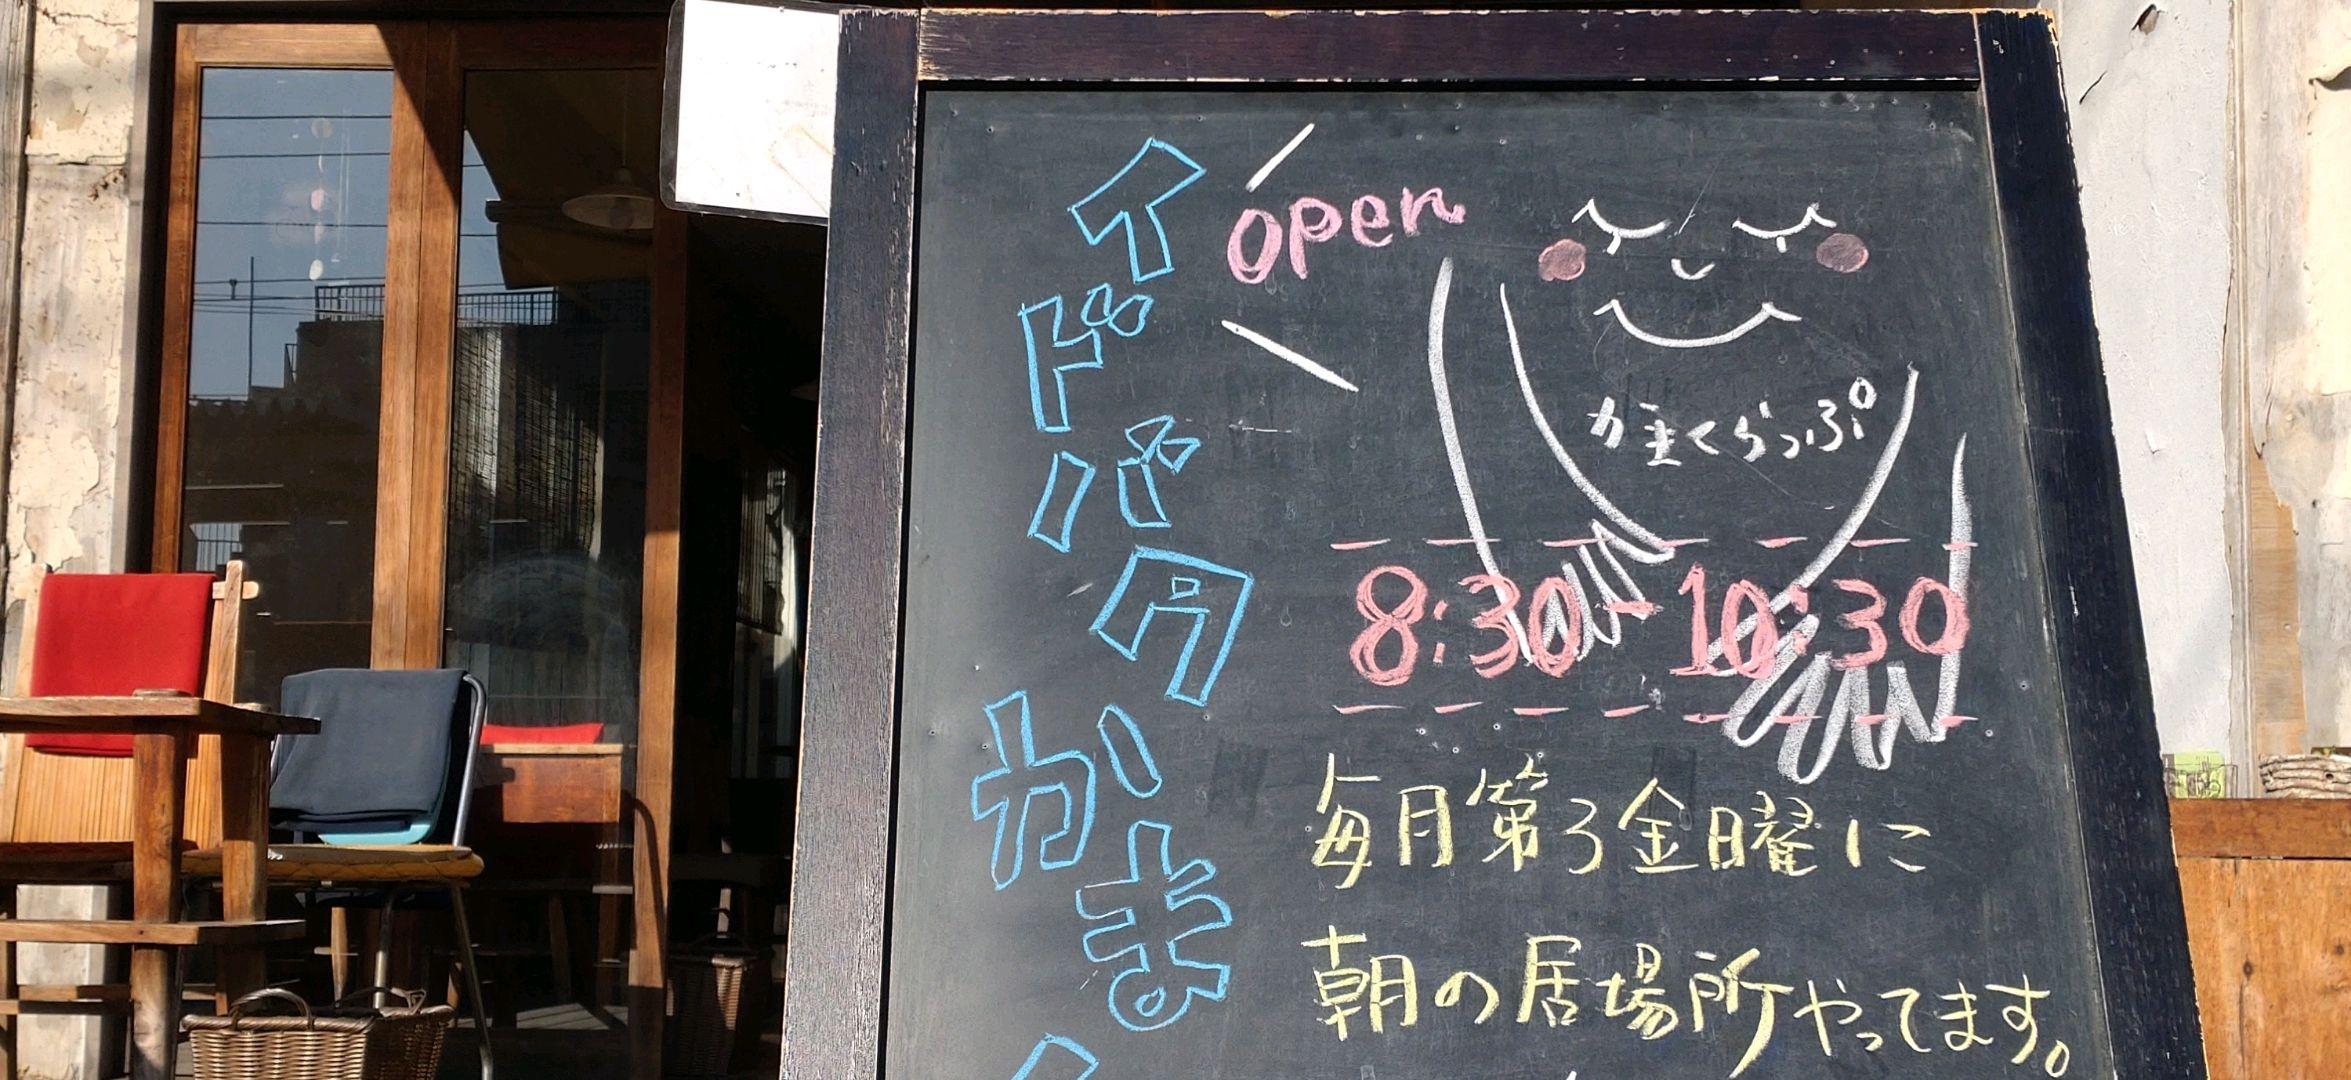 イドバタかまく
open
かまくらっぷ
8:30-10:30
毎月第3金曜に
朝の居場所やってます。